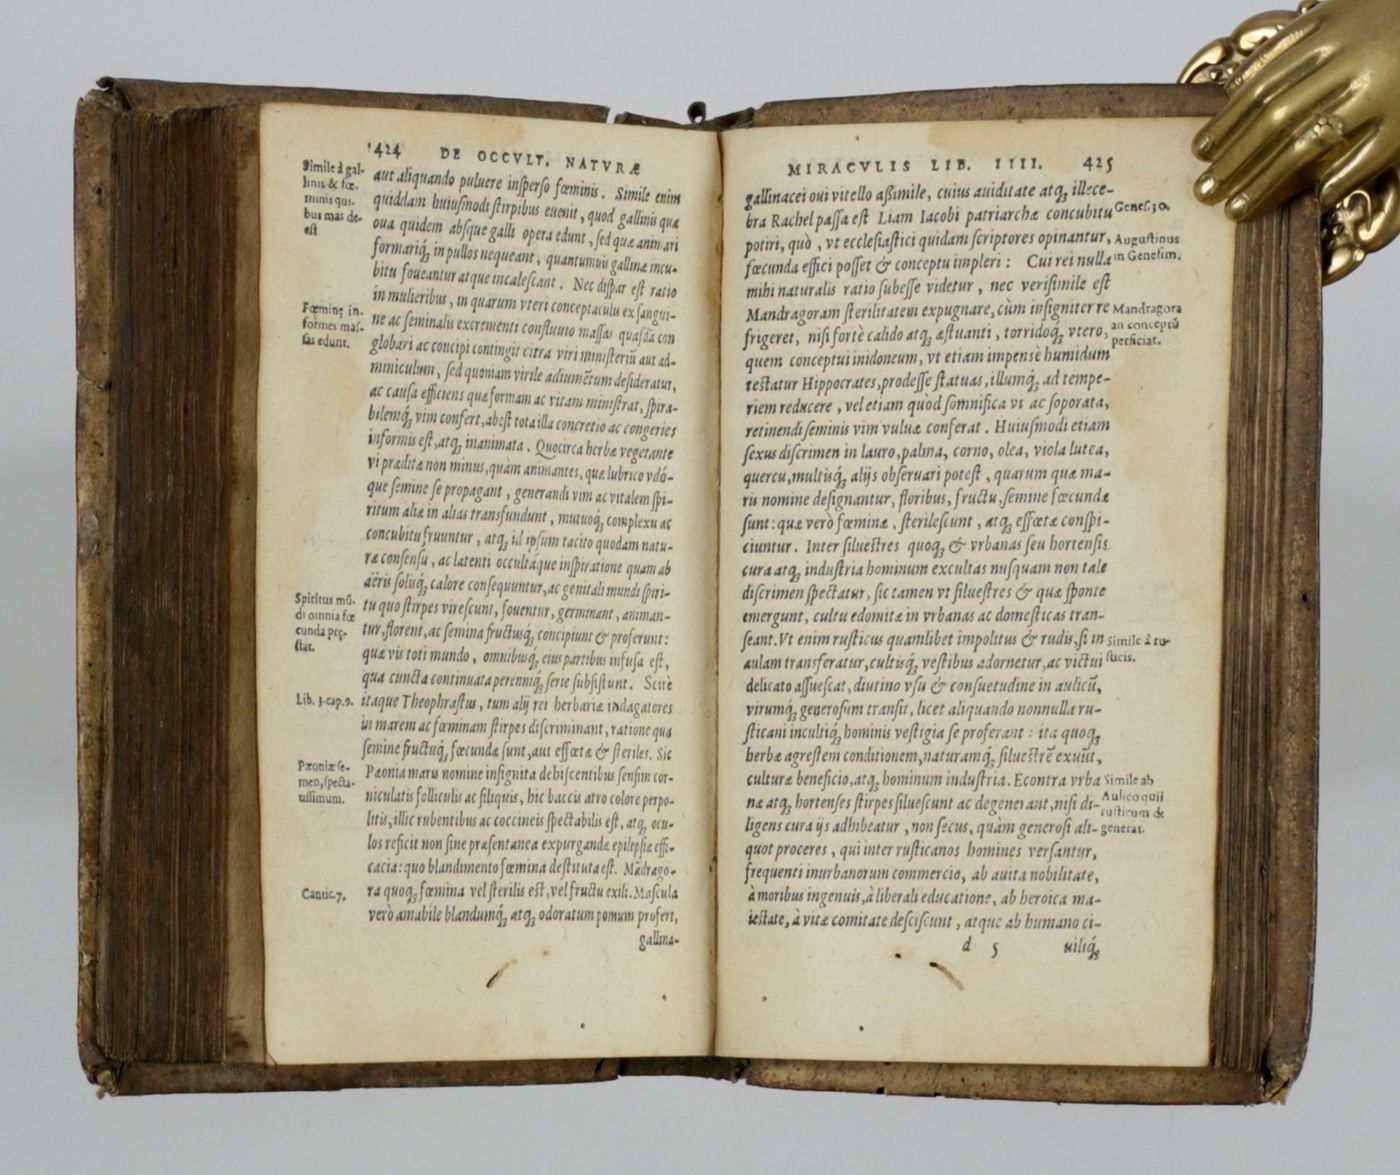 424 DE OCCVLT. NATVRÆ
Simile à gal-
linis & fœ-
minis qui-
bus mas de-
est
aut aliquando puluere insperso fœminis. Simile enim
quiddam huiusmodi stirpibus euenit, quod gallinis quæ
oua quidem absque galli opera edunt, sed quæ animari
formariq́; in pullos nequeant, quantumuis gallinæ incu-
bitu foueantur atque incalescant. Nec dispar est ratio
in mulieribus, in quarum vteri conceptaculis ex sangui-
Fœminę in-
formes mas-
sas edunt.
ne ac seminalis excrementi constuuto massas quasdā con
globari ac concipi contingit citra viri ministeriū aut ad-
miniculum, sed quoniam virile adiumētum desideratur,
ac causa efficiens quæ formam ac vitam ministrat, spira-
bilemq́; vim confert, abest tota illa concretio ac congeries
informis est, atq; inanimata. Quocirca herbæ vegetante
vi præditæ non minus, quàm animantes, quæ lubrico vdó-
que semine se propagant, generandi vim ac vitalem spi-
ritum aliæ in alias transfundunt, mutuoq́; complexu ac
concubitu fruuntur, atq; id ipsum tacito quodam natu-
ræ consensu, ac latenti occultáque inspiratione quam ab
aëris solisq́; calore consequuntur, ac genitali mundi spiri-
Spiritus mū-
di omnia fœ
cunda prę-
stat.
tu quo stirpes virescunt, fouentur, germinant, animan-
tur, florent, ac semina fructusq́; concipiunt & proferunt:
quæ vis toti mundo, omnibusq́; eius partibus infusa est,
qua cuncta continuata perenniq́; serie subsistunt. Scitè
Lib. 3. cap. 9.
itaque Theophrastus, tum alij rei herbariæ indagatores
in marem ac fœminam stirpes discriminant, ratione qua
semine fructuq́; fœcundæ sunt, aut effœtæ & steriles. Sic
Pæoniæ se-
men, specta-
tissimum.
Pæonia maris nomine insignita dehiscentibus sensim cor-
niculatis folliculis ac siliquis, hic baccis atro colore perpo-
litis, illic rubentibus ac coccineis spectabilis est, atq; ocu-
los reficit non sine præsentanea expurgandæ epilepsiæ effi-
cacia: quo blandimento fœmina destituta est. Mādrago-
Cantic. 7.
ra quoq; fœmina vel sterilis est, vel fructu exili. Mascula
verò amabile blandumq́; atq; odoratum pomum profert,
gallina-
MIRACVLIS LIB. IIII. 425
gallinacei oui vitello assimile, cuius auiditate atq; illece-
bra Rachel passa est Liam Iacobi patriarchæ concubitu
Genes. 30.
potiri, quò, vt ecclesiastici quidam scriptores opinantur,
Augustinus
in Genesim.
fœcunda effici posset & conceptu impleri: Cui rei nulla
mihi naturalis ratio subesse videtur, nec verisimile est
Mandragoram sterilitatem expugnare, cùm insigniter re
Mandragora
an conceptū
perficiat.
frigeret, nisi fortè calido atq; æstuanti, torridoq; vtero,
quem conceptui inidoneum, vt etiam impensè humidum
testatur Hippocrates, prodesse statuas, illumq́; ad tempe-
riem reducere, vel etiam quòd somnifica vi ac soporata,
retinendi seminis vim vuluæ conferat. Huiusmodi etiam
sexus discrimen in lauro, palma, corno, olea, viola lutea,
quercu, multisq́; alijs obseruari potest, quarum quæ ma-
ris nomine designantur, floribus, fructu, semine fœcundæ
sunt: quæ verò fœminæ, sterilescunt, atq; effœtæ conspi-
ciuntur. Inter siluestres quoq; & vrbanas seu hortensis
cura atq; industria hominum excultas nusquam non tale
discrimen spectatur, sic tamen vt siluestres & quæ sponte
emergunt, cultu edomitæ in vrbanas ac domesticas tran-
seant. Vt enim rusticus quamlibet impolitus & rudis, si in
Simile à ru-
sticis.
aulam transferatur, cultisq́; vestibus adornetur, ac victui
delicato assuescat, diutino vsu & consuetudine in aulicū,
virumq́; generosum transit, licet aliquando nonnulla ru-
sticani incultiq́; hominis vestigia se proferant: ita quoq;
herbæ agrestem conditionem, naturamq́; siluestrē exuūt,
culturæ beneficio, atq; hominum industria. Econtra vrba
Simile ab
Aulico qui
rusticum &
generat.
næ atq; hortenses stirpes siluescunt ac degenerant, nisi di-
ligens cura ijs adhibeatur, non secus, quàm generosi ali-
quot proceres, qui inter rusticanos homines versantur,
frequenti inurbanorum commercio, ab auita nobilitate,
à moribus ingenuis, à liberali educatione, ab heroica ma-
iestate, à vitæ comitate desciscunt, atque ab humano ci-
d 5 uiliq́;